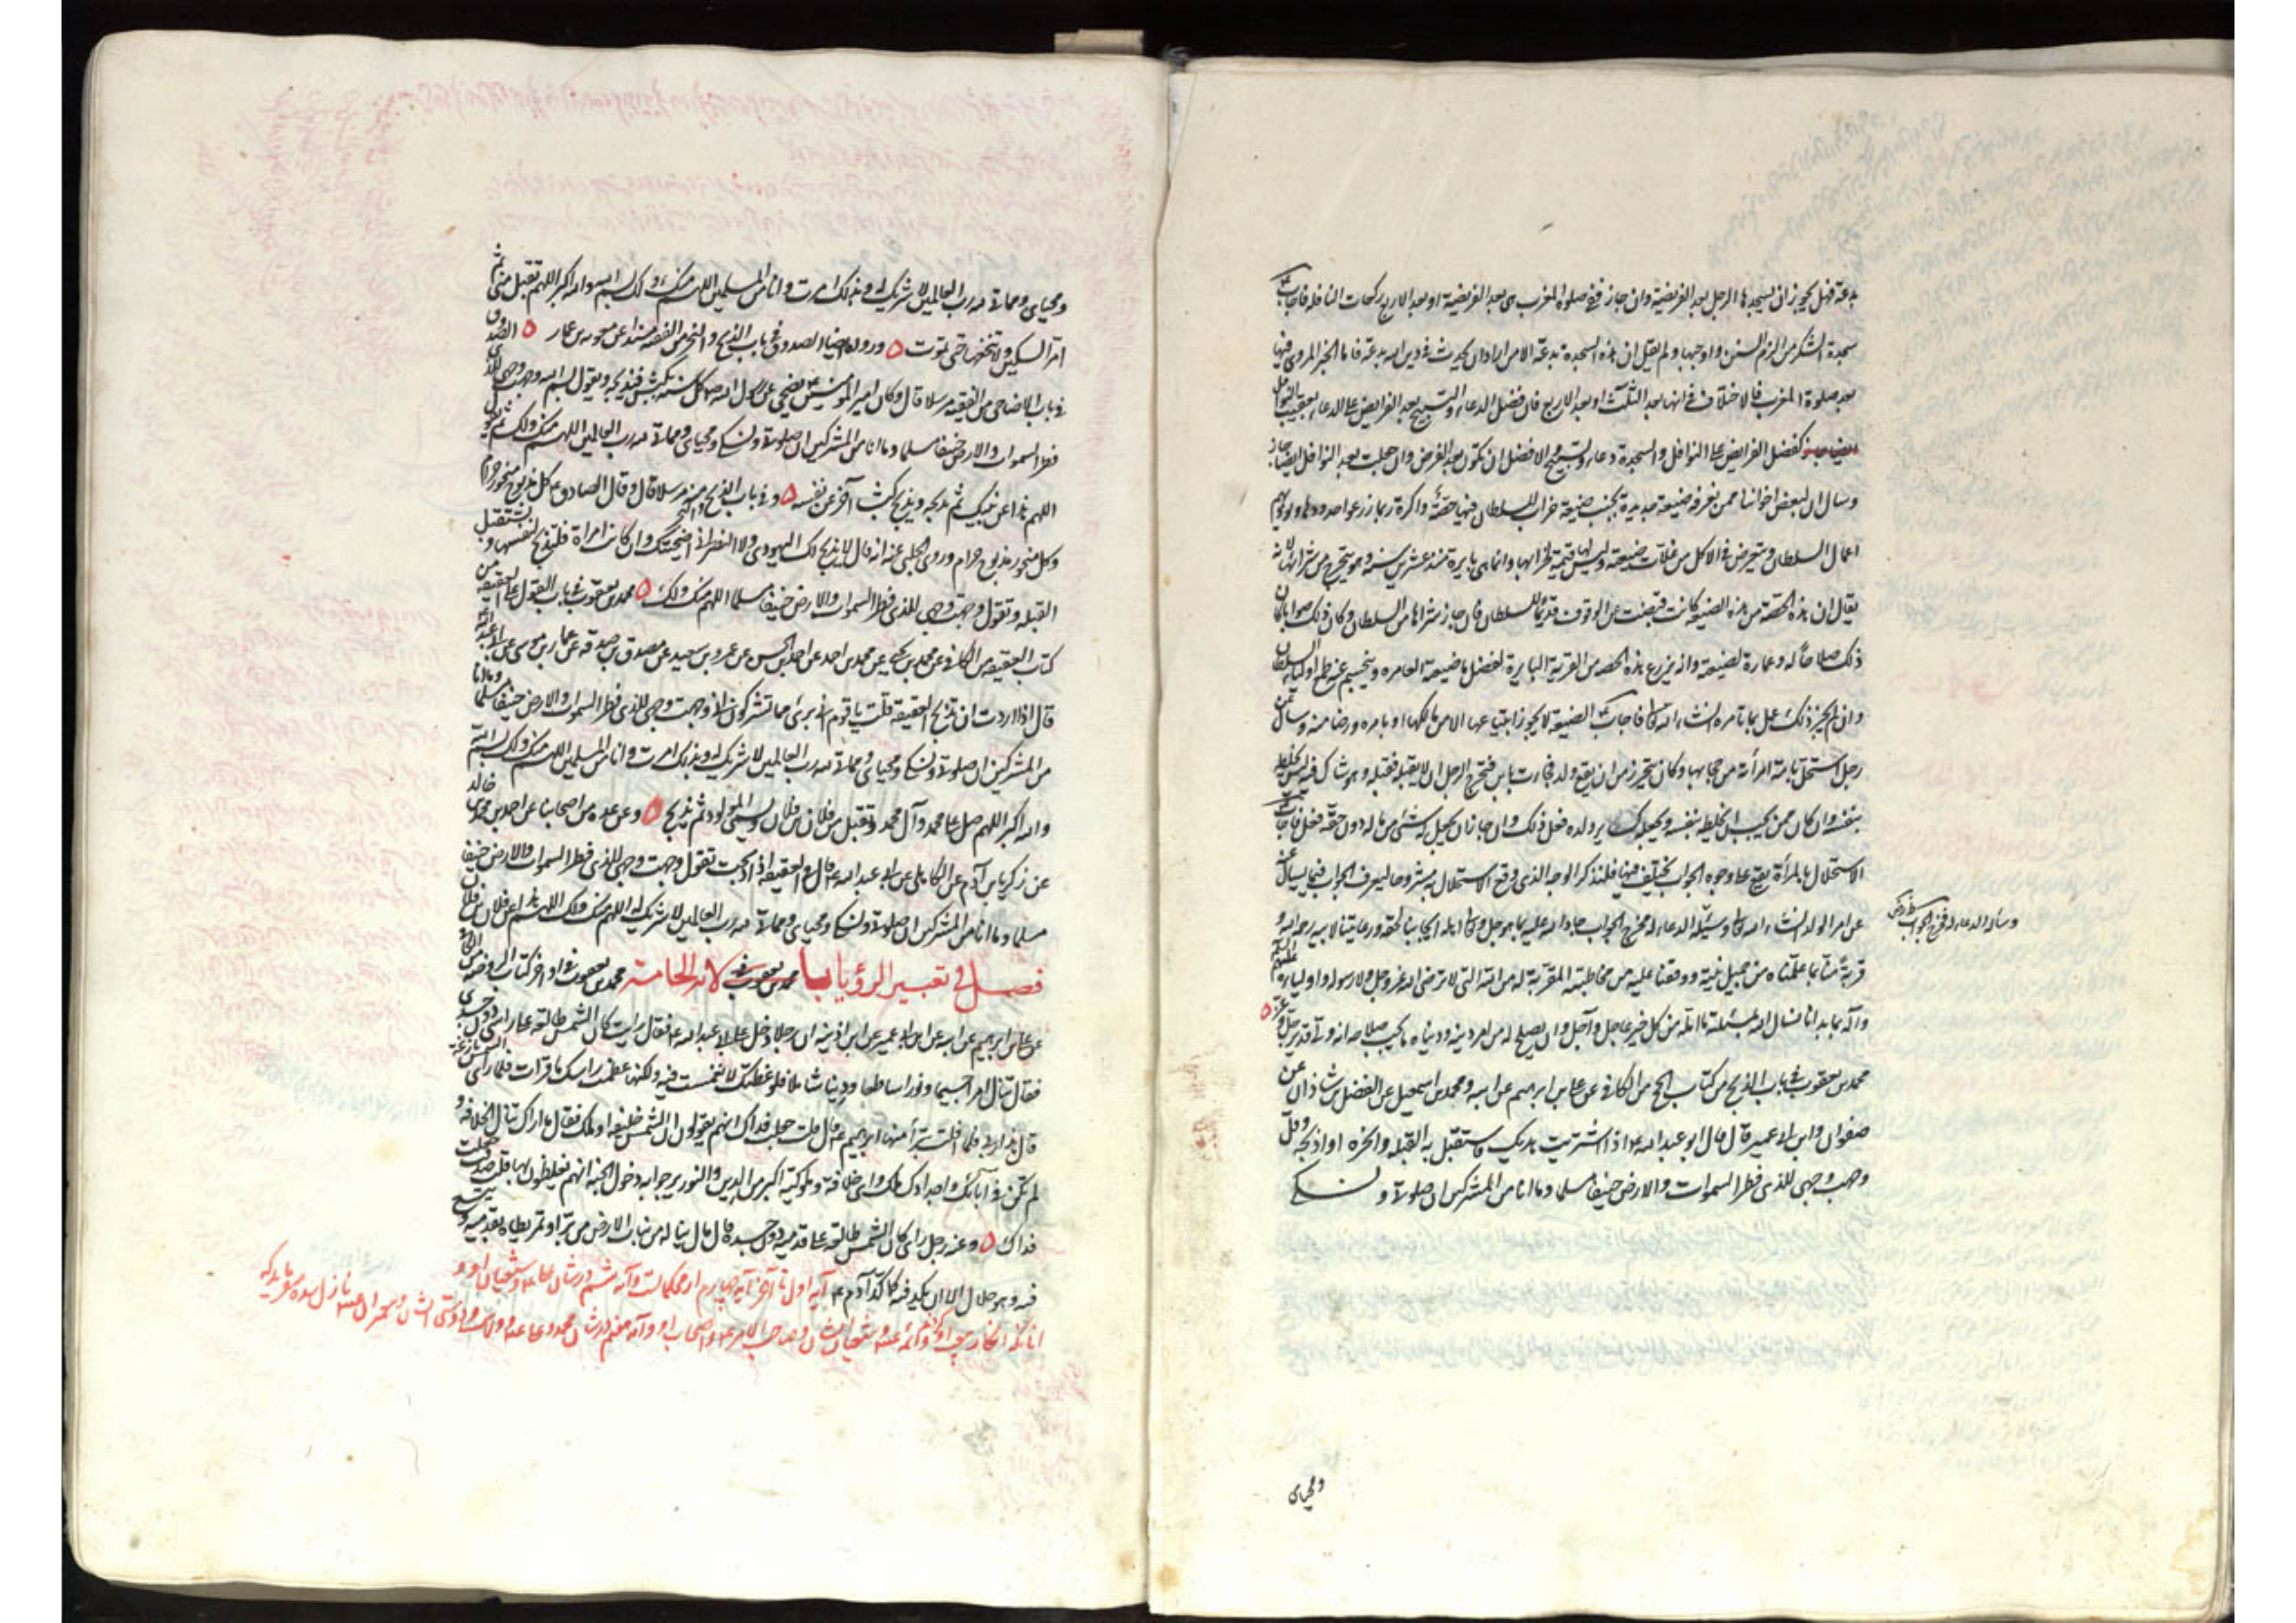 بدعة فهل يجوز ان يسجدها الرجل بعد الفريضة وان جاز ففي صلوة المغرب هى بعد الفريضة او بعد الاربع ركعات النافلة فاجاب
سجدة الشكر من الزم السنن واوجبها ولم يقل ان هذه السجدة بدعة الا من اراد ان يحدث فى دين الله بدعة فاما الخبر المروى فيها
بعد صلوة المغرب فالاختلاف فى انها بعد الثلث او بعد الاربع فان فضل الدعاء والتسبيح بعد الفرايض على الدعاء بعقيب النوافل
كفضل الفرايض على النوافل والسجدة دعاء وتسبيح فالافضل ان تكون بعد الفرض وان جعلت بعد النوافل ايضا جاز
وسال ان لبعض اخواننا ممن نعرفه ضيعة جديدة بجنب ضيعة خراب للسلطان فيها حصة واكرته ربما زرعوا حدودها ويؤذيهم
عمال السلطان ويتعرض فى الاكل من غلات ضيعته وليس لها قيمة لخرابها وانما هى بايرة منذ عشرين سنة وهو يتحرج من شرائها لانه
يقال ان هذه الحصة من هذه الضيعة كانت قبضت عن الوقف قديما للسلطان فان جاز شراها من السلطان وكان ذلك صوابا كان
ذلك صلاحا له وعمارة لضيعته وانه يزرع هذه الحصة من القرية البايرة لفضل ماء ضيعته العامره وينحسم عنه طمع اولياء السلطان
وان لم يجز ذلك عمل بما تامره انشاء الله تعالى فاجاب الضيعة لا يجوز ابتياعها الا من مالكها او بامره ورضا منه وسال عن
رجل استحل بامته امرأة من حجابها وكان يتحرز من ان يقع ولد فجاءت بابن فتحرج الرجل ان لا يقبله فقبله وهو شاك فيه ليس يخلطه
بنفسه وان كان ممن يجب ان يخلطه بنفسه ويجعله كساير ولده فعل ذلك وان جاز ان يجعل له شئ من ماله دون حقه فعل فاجاب
الاستحلال بالمرأة يقع على وجوه الجواب يختلف فيها فليذكر الوجه الذى وقع الاستحلال به مشروحا ليعرف الجواب فيما يسال عنه
من امر الولد انشاء الله تعالى وسئله الدعاء له فخرج الجواب جاد الله عليه بما هو جل وتعالى اهله ايجابنا لحقه ورعايتنا لابيه رحمه الله و
وسأله الدعاء له فخرج الجواب
قربه منا بما علمناه من جميل نيته ووقفنا عليه من مخاطبته المقربة له من الله التى لا ترضى الله عز وجل ولا رسوله واولياءه عليهم السلام
وآله بما بدانا نسال الله بمسئلته ما امله من كل خير عاجل وآجل وان يصلح له من امر دينه ودنياه ما يحب صلاحه انه ولى قدير
محمد بن يعقوب فى باب الذبح من كتاب الحج من الكافى عن على بن ابراهيم عن ابيه ومحمد بن اسمعيل عن الفضل بن شاذان عن
صفوان وابن ابى عمير قال قال ابو عبد الله ع اذا اشتريت هديك فاستقبل به القبلة وانحره او اذبحه وقل
وجهت وجهى للذى فطر السموات والارض حنيفا مسلما وما انا من المشركين ان صلوتى ونسكى
ومحياى
ومحياى ومماتى لله رب العالمين لا شريك له وبذلك امرت وانا من المسلمين اللهم منك ولك بسم الله والله اكبر اللهم تقبل منى ثم
امر السكين ولا تنخعها حتى تموت ه ورواه ايضا الصدوق فى باب الذبح والنحر من الفقيه مسندا عن معوية بن عمار ه الصدوق
فى باب الاضاحى من الفقيه مرسلا قال وكان امير المؤمنين ع يضحى عن رسول الله ص كل سنة بكبش فيذبحه ويقول بسم الله وجهت وجهى للذى
فطر السموات والارض حنيفا مسلما وما انا من المشركين ان صلوتى ونسكى ومحياى ومماتى لله رب العالمين اللهم منك ولك ثم يقول
اللهم هذا عن نبيك ثم يذبحه ويذبح كبشا آخر عن نفسه ه وفى باب الذبح والنحر منه مرسلا قال وقال الصادق ع كل مذبوح منحور حرام
وكل منحور مذبوح حرام وروى الحلبى عنه انه قال لا يذبح لك اليهودى ولا النصرانى اضحيتك وان كانت امراة فلتذبح لنفسها وتستقبل
القبلة وتقول وجهت وجهى للذى فطر السموات والارض حنيفا مسلما اللهم منك ولك ه محمد بن يعقوب فى باب القول على العقيقة من
كتاب العقيقة من الكافى عن محمد بن يحيى عن محمد بن احمد عن احمد بن الحسن عن عمرو بن سعيد عن مصدق بن صدقة عن عمار بن موسى عن ابى عبد الله
قال اذا اردت ان تذبح العقيقة قلت يا قوم انى برئ مما تشركون انى وجهت وجهى للذى فطر السموات والارض حنيفا مسلما وما انا
من المشركين ان صلوتى ونسكى ومحياى ومماتى لله رب العالمين لا شريك له وبذلك امرت وانا من المسلمين اللهم منك ولك بسم الله
والله اكبر اللهم صل على محمد وآل محمد وتقبل من فلان بن فلان وتسمى المولود ثم يذبح ه وعن عدة من اصحابنا عن احمد بن محمد بن خالد
عن زكريا بن آدم عن الكاهلى عن ابى عبد الله ع قال فى العقيقة اذا ذبحت تقول وجهت وجهى للذى فطر السموات والارض حنيفا
مسلما وما انا من المشركين ان صلوتى ونسكى ومحياى ومماتى لله رب العالمين لا شريك له اللهم منك ولك اللهم هذا عن فلان بن فلان
فصل فى تعبير الرؤيا محمد بن يعقوب فى اواخر كتاب الروضة من الكافى
عن على بن ابراهيم عن ابيه عن ابن ابى عمير عن ابن اذينة ان رجلا دخل على ابى عبد الله ع فقال رايت كان الشمس طالعة على راسى دون جسدى
فقال تنال امرا جسيما ونورا ساطعا ودينا شاملا فلو غطتك لانغمست فيه ولكنها غطت راسك اما قرات فلما راى الشمس بازغة
قال هذا ربى فلما افلت تبرأ منها ابراهيم ع قال قلت جعلت فداك انهم يقولون ان الشمس خليفة او ملك فقال ما اراك تنال الخلافة و
لم تكن فى آبائك واجدادك ملك واى خلافة وملوكية اكبر من الدين والنور يرجو به دخول الجنة انهم يغلطون بها قلت صدقت جعلت
فداك ه وعنه رجل راى كان الشمس طالعة على قدميه دون جسده قال مال يناله من نبات الارض من بر او تمر يطاه بقدميه ويتسع
فيه وهو حلال الا ان يكد فيه كما كد آدم ع